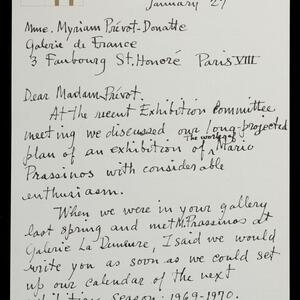 January 29
Mme. Myriam Prévot-Donatte
Galerie de France
3 Faubourg St. Honoré Paris VIII
Dear Madam Prévot.
At the recent Exhibition Committee
meeting we discussed our long-projected
plan of an exhibition of the work of Mario
Prassinos with considerable
enthusiasm.
When we were in your gallery
last spring and met M. Prassinos at
Galerie La Demeure, I said we would
write you as soon as we could set
up our calendar of the next
exhibition season: 1969-1970.